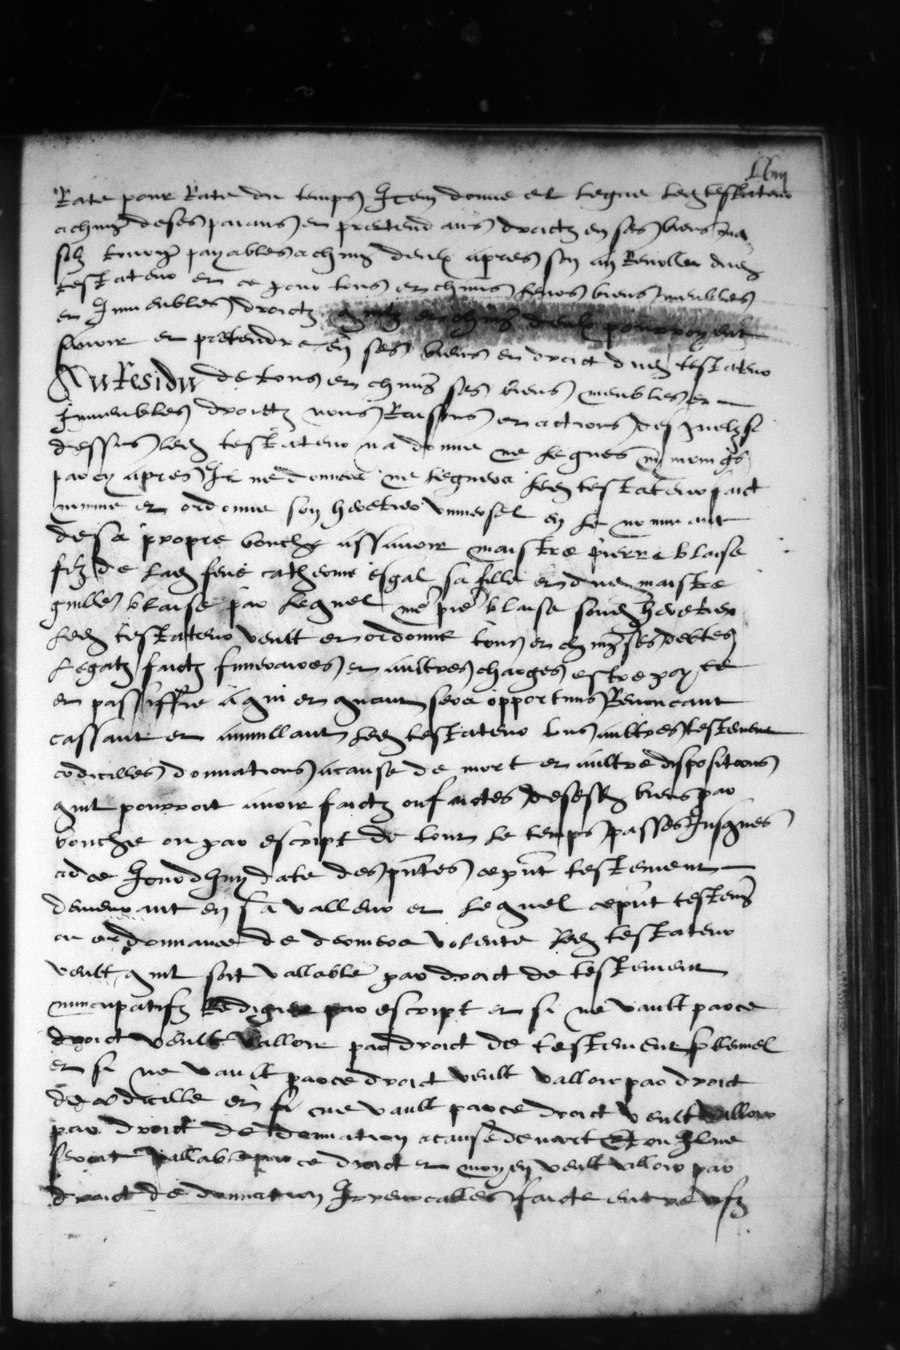 Rate pour Rate du temps Item donne et legue led testateur
a chung de ses parans et pretendans droictz en ses biens
solz tournoys payables a chung deulx apres son an Revollu dued
testateur et ce pour tous et chuns leurs biens meubles
et Immeubles droictz et chung deulx pourroyent
avoir et pretendre en ses biens et droict dued testateur
Au Residu de tous et chungs ses biens meubles et
Immeubles droictz noms Raisons et actions desquelz si
dessus led testateur na donne ne legues ny moings
par cy apres Il ne donnera ne leguera led testateur faict
nomme et ordonne son heretier universel en le nommant
de sa propre bouche assavoir maistre pierre blaise
filz de lad feue catherine esgal sa fille et dued maistre
guillem blaise par lequel me pierre blaise sond heretier
led testateur veult et ordonne tous et chungs ses debtes
legatz faictz funeraires et aultres charges estre payee
et passiffie a qui et quant sera opportuns Revoncant
cassant et annullant led testateur tous aultres testement
codicilles donnations a cause de mort et aultre dispositions
quil pourroit avoir faictz ou faictes de sesd biens par
bouche ou par escript de tout le temps passes Jusques
ad ce Jourdhuy date des pntes ce pnt testement
demeurant en sa valleur et lequel cepnt testemt
et ordonnance de derniere volente led testateur
veult quil soit vallable par droict de testement
nuncupatifz Redigier par escript et si ne vault par ce
droict veult valloir par droict de testement solemnel
et si ne vault par ce droict veult valloir par droict
de codicille et si ne vault par ce droict veult valloir
par droict de donnation a cause de mort Et ou Il ne
seroit vallable par ce droict et moyen veult valloir par
droict de donnation Irrevocables faicte entre vifz